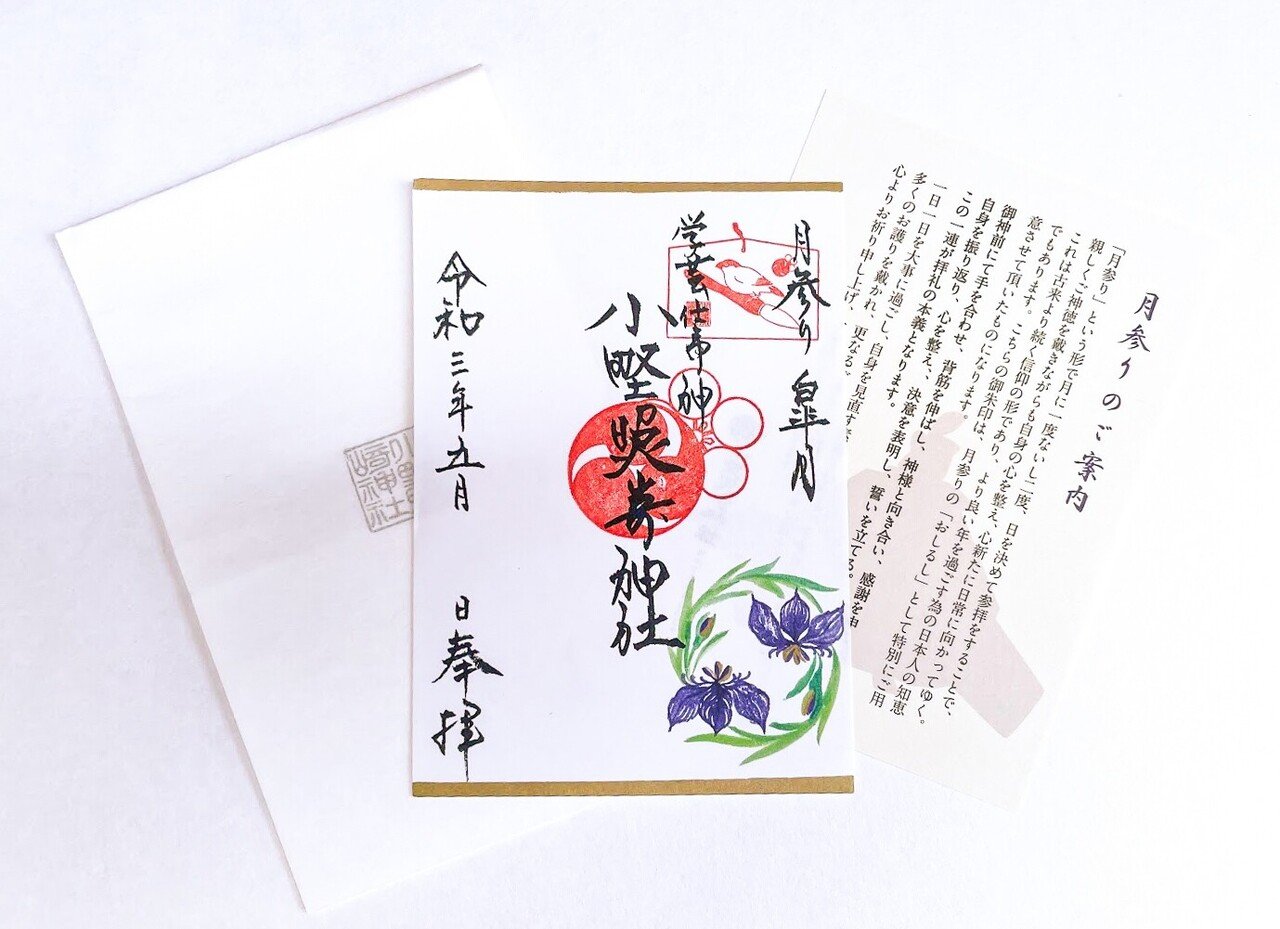 月参りのご案内
「月参り」という形で月に一度ないし二度、日を決めて参拝をすることで、
親しくご神徳を戴きながらも自身の心を整え、心新たに日常に向かってゆく。
これは古来より続く信仰の形であり、より良い年を過ごす為の日本人の知恵
でもあります。こちらの御朱印は、月参りの「おしるし」として特別にご用
意させて頂いたものになります。
御神前にて手を合わせ、背筋を伸ばし、神様と向き合い、感謝を
自身を振り返り、心を整え、決意を表明し、誓いを立てる。
この一連が拝礼の本義となります。
一日一日を大事に過ごし、自身を見直す
多くのお護りを戴かれ、更なる
心よりお祈り申し上げ、
月参り 皐月
学芸仕事神
小野照崎神社
令和三年五月 日奉拝
小野
崎神社